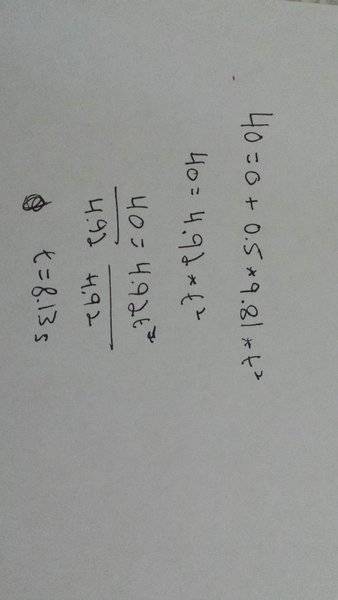 40=0+0.5*9.81*t²
40=4.92*t²
40=4.92t²
4.92 4.92
t=8.13s